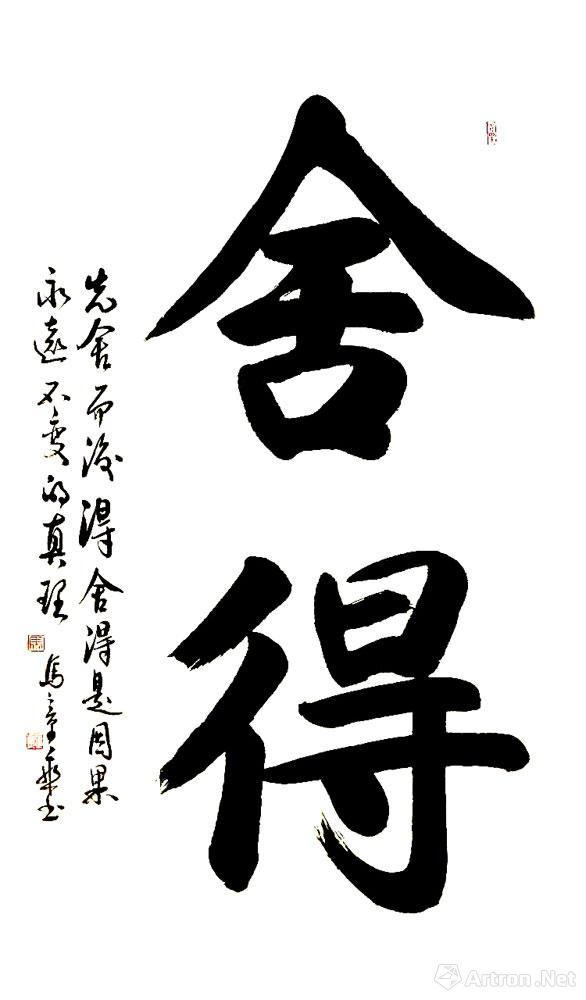 舍得
先舍而後得舍得是因果
永遠不變的真理
Artron.Net